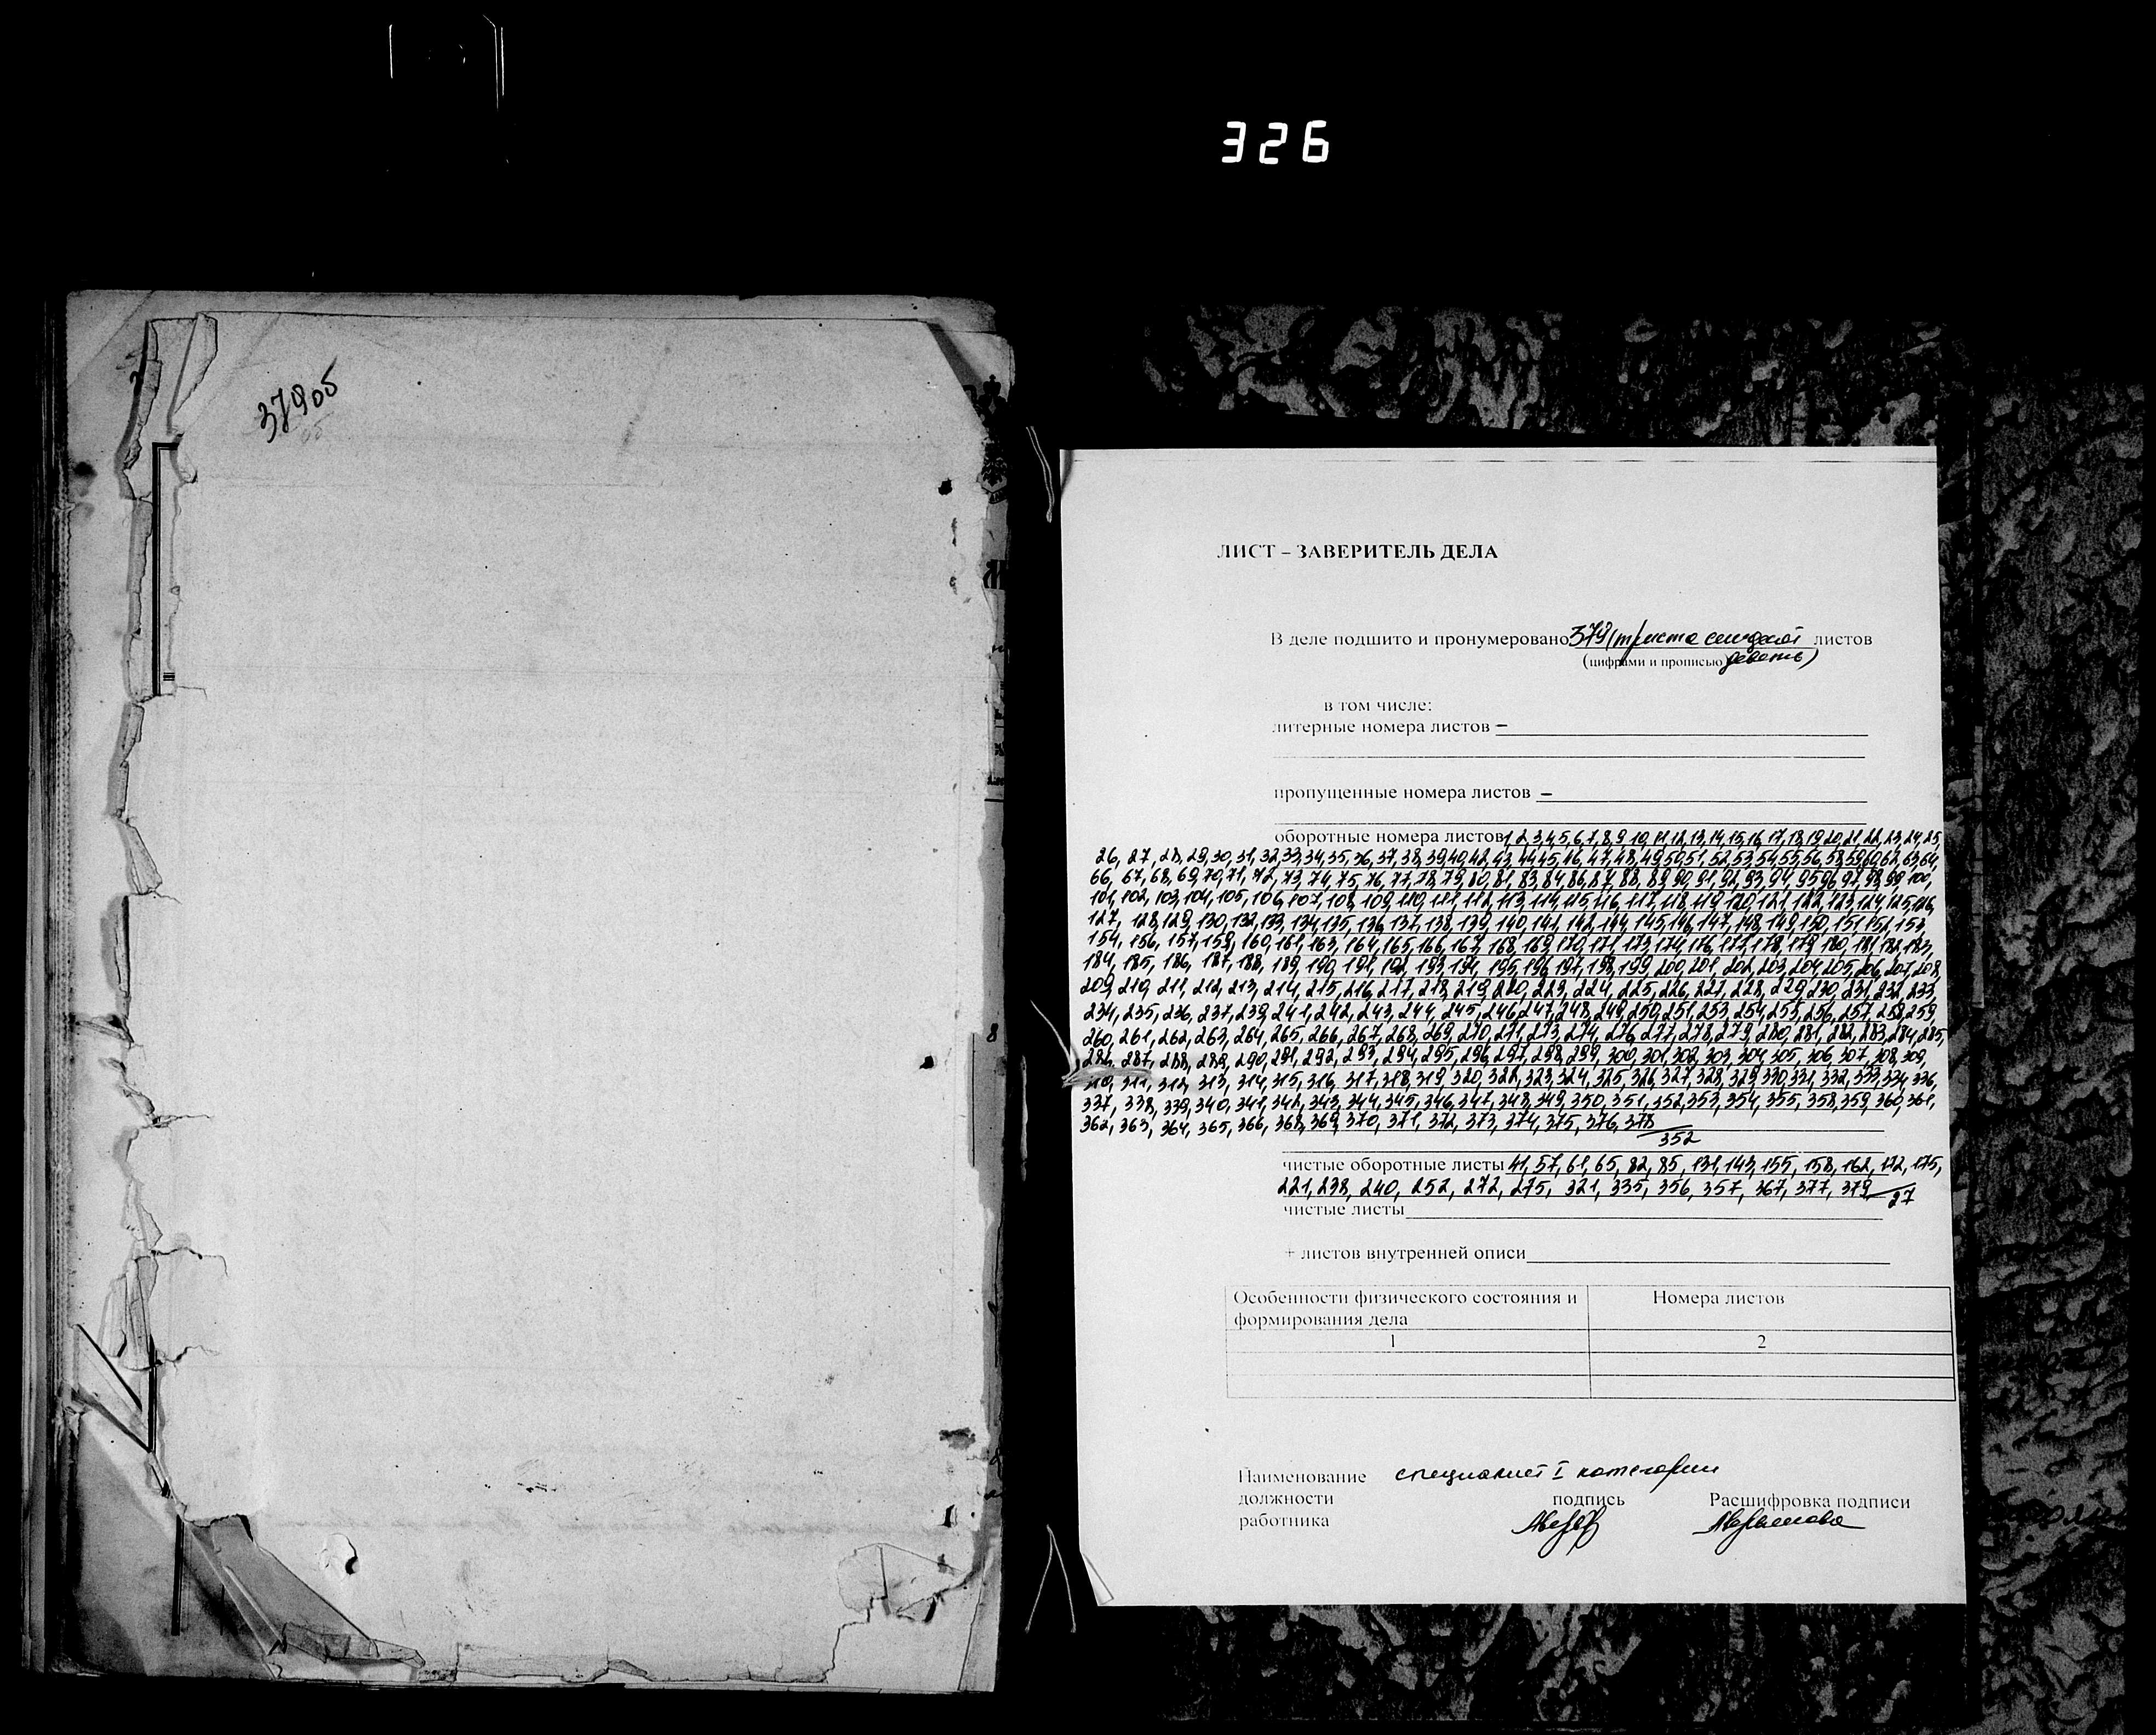 326
379об
ЛИСТ – ЗАВЕРИТЕЛЬ ДЕЛА
В деле подшито и пронумеровано 379 (триста семьдесят листов
(цифрами и прописью) девять)
в том числе:
литерные номера листов –
пропущенные номера листов –
оборотные номера листов 1, 2, 3, 4, 5, 6, 7, 8, 9, 10, 11, 12, 13, 14, 15, 16, 17, 18, 19, 20, 21, 22, 23, 24, 25,
26, 27, 28, 29, 30, 31, 32, 33, 34, 35, 36, 37, 38, 39, 40, 42, 43, 44, 45, 46, 47, 48, 49, 50, 51, 52, 53, 54, 55, 56, 58, 59, 60, 62, 63, 64,
66, 67, 68, 69, 70, 71, 72, 73, 74, 75, 76, 77, 78, 79, 80, 81, 83, 84, 86, 87, 88, 89, 90, 91, 92, 93, 94, 95, 96, 97, 98, 99, 100,
101, 102, 103, 104, 105, 106, 107, 108, 109, 110, 111, 112, 113, 114, 115, 116, 117, 118, 119, 120, 121, 122, 123, 124, 125, 126,
127, 128, 129, 130, 132, 133, 134, 135, 136, 137, 138, 139, 140, 141, 142, 144, 145, 146, 147, 148, 149, 150, 151, 152, 153,
154, 156, 157, 159, 160, 161, 163, 164, 165, 166, 167, 168, 169, 170, 171, 173, 174, 176, 177, 178, 179, 180, 181, 182, 183,
184, 185, 186, 187, 188, 189, 190, 191, 192, 193, 194, 195, 196, 197, 198, 199, 200, 201, 202, 203, 204, 205, 206, 207, 208,
209, 210, 211, 212, 213, 214, 215, 216, 217, 218, 219, 220, 223, 224, 225, 226, 227, 228, 229, 230, 231, 232, 233,
234, 235, 236, 237, 239, 241, 242, 243, 244, 245, 246, 247, 248, 249, 250, 251, 253, 254, 255, 256, 257, 258, 259,
260, 261, 262, 263, 264, 265, 266, 267, 268, 269, 270, 271, 273, 274, 276, 277, 278, 279, 280, 281, 282, 283, 284, 285,
286, 287, 288, 289, 290, 291, 292, 293, 294, 295, 296, 297, 298, 299, 300, 301, 302, 303, 304, 305, 306, 307, 308, 309,
310, 311, 312, 313, 314, 315, 316, 317, 318, 319, 320, 322, 323, 324, 325, 326, 327, 328, 329, 330, 331, 332, 333, 334, 336,
337, 338, 339, 340, 341, 342, 343, 344, 345, 346, 347, 348, 349, 350, 351, 352, 353, 354, 355, 358, 359, 360, 361,
362, 363, 364, 365, 366, 368, 369, 370, 371, 372, 373, 374, 375, 376, 378
352
чистые оборотные листы 41, 57, 61, 65, 82, 85, 131, 143, 155, 158, 162, 172, 175,
221, 238, 240, 252, 272, 275, 321, 335, 356, 357, 367, 377, 379
27
чистые листы
+ листов внутренней описи
Особенности физического состояния и Номера листов
формирования дела
1 2
Наименование специалист I категории
должности подпись Расшифровка подписи
работника